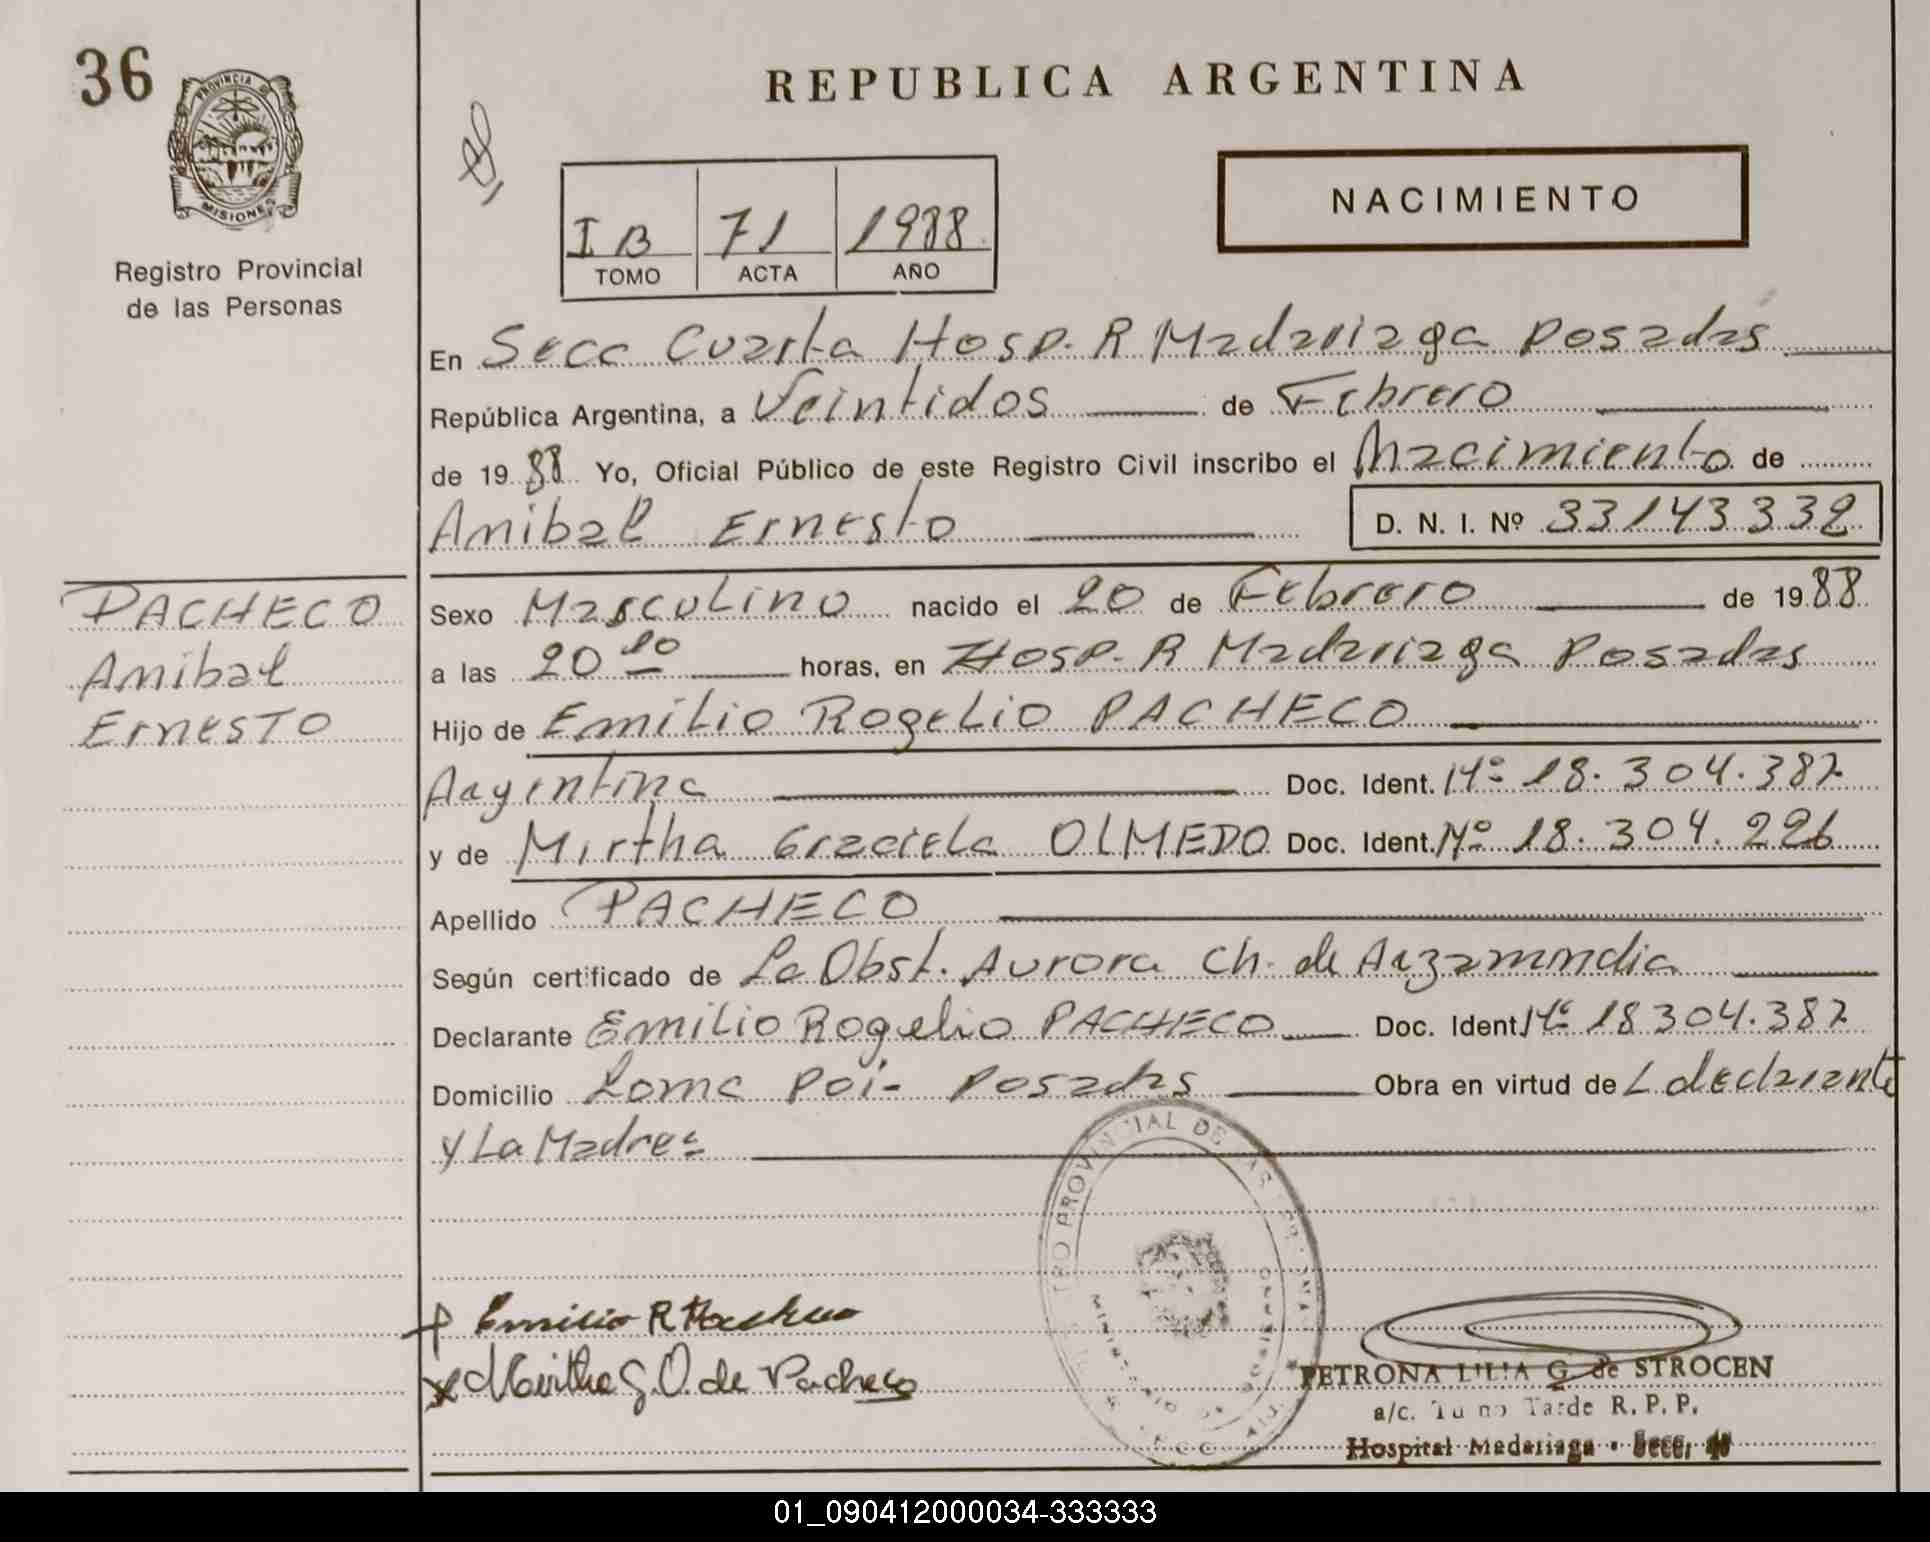 36
PROVINCIA DE
MISIONES
Registro Provincial
de las Personas
REPUBLICA ARGENTINA
NACIMIENTO
I B 71 1988
TOMO ACTA AÑO
En Secc Cuarta Hosp. R Madariaga Posadas
República Argentina, a Veintidos de Febrero
de 19 88 Yo, Oficial Público de este Registro Civil inscribo el Nacimiento de
Anibal Ernesto D. N. I. Nº 33143332
PACHECO
Anibal
Ernesto
Sexo Masculino nacido el 20 de Febrero de 19 88
a las 20 10 horas, en Hosp. R Madariaga Posadas
Hijo de Emilio Rogelio PACHECO
Argentina Doc. Ident. Nº 18.304.387
y de Mirtha Graciela OLMEDO Doc. Ident. Nº 18.304.226
Apellido PACHECO
Según certificado de La Obst. Aurora Ch. de Arzamendia
Declarante Emilio Rogelio PACHECO Doc. Ident Nº 18304.387
Domicilio Loma Poi - Posadas Obra en virtud de L declarante
y La Madre =
PROVINCIAL DE
Emilio R Pacheco
Mirtha G. O. de Pacheco
PETRONA LILIA G. de STROCEN
a/c. Turno Tarde R. P. P.
Hospital Madariaga - Secc.
01_090412000034-333333